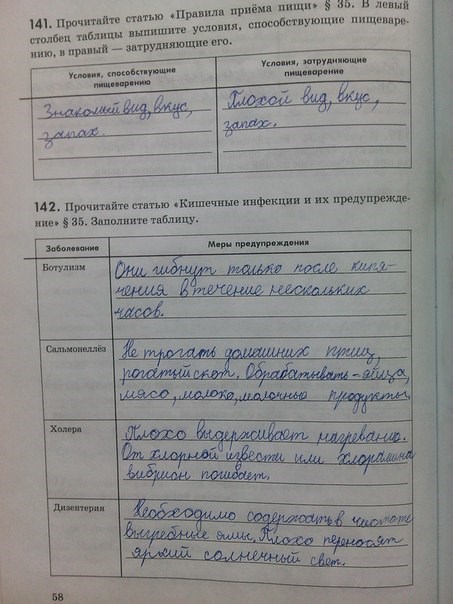 141. Прочитайте статью «Правила приёма пищи» § 35. В левый
столбец таблицы выпишите условия, способствующие пищеваре-
нию, в правый — затрудняющие его.
Условия, способствующие
пищеварению
Условия, затрудняющие
пищеварение
Знакомый вид, вкус,
запах.
Плохой вид, вкус,
запах.
142. Прочитайте статью «Кишечные инфекции и их предупрежде-
ние» § 35. Заполните таблицу.
Заболевание
Меры предупреждения
Ботулизм
Они гибнут только после кипя-
чения в течение нескольких
часов.
Сальмонеллёз
Не трогать домашних птиц,
рогатый скот. Обрабатывать - яйца,
мясо, молоко, молочные продукты.
Холера
Плохо выдерживает нагревание.
От хлорной извести или хлорамина
вибрион погибает.
Дизентерия
Необходимо содержать в чистоте
выгребные ямы. Плохо переносят
яркий солнечный свет.
58